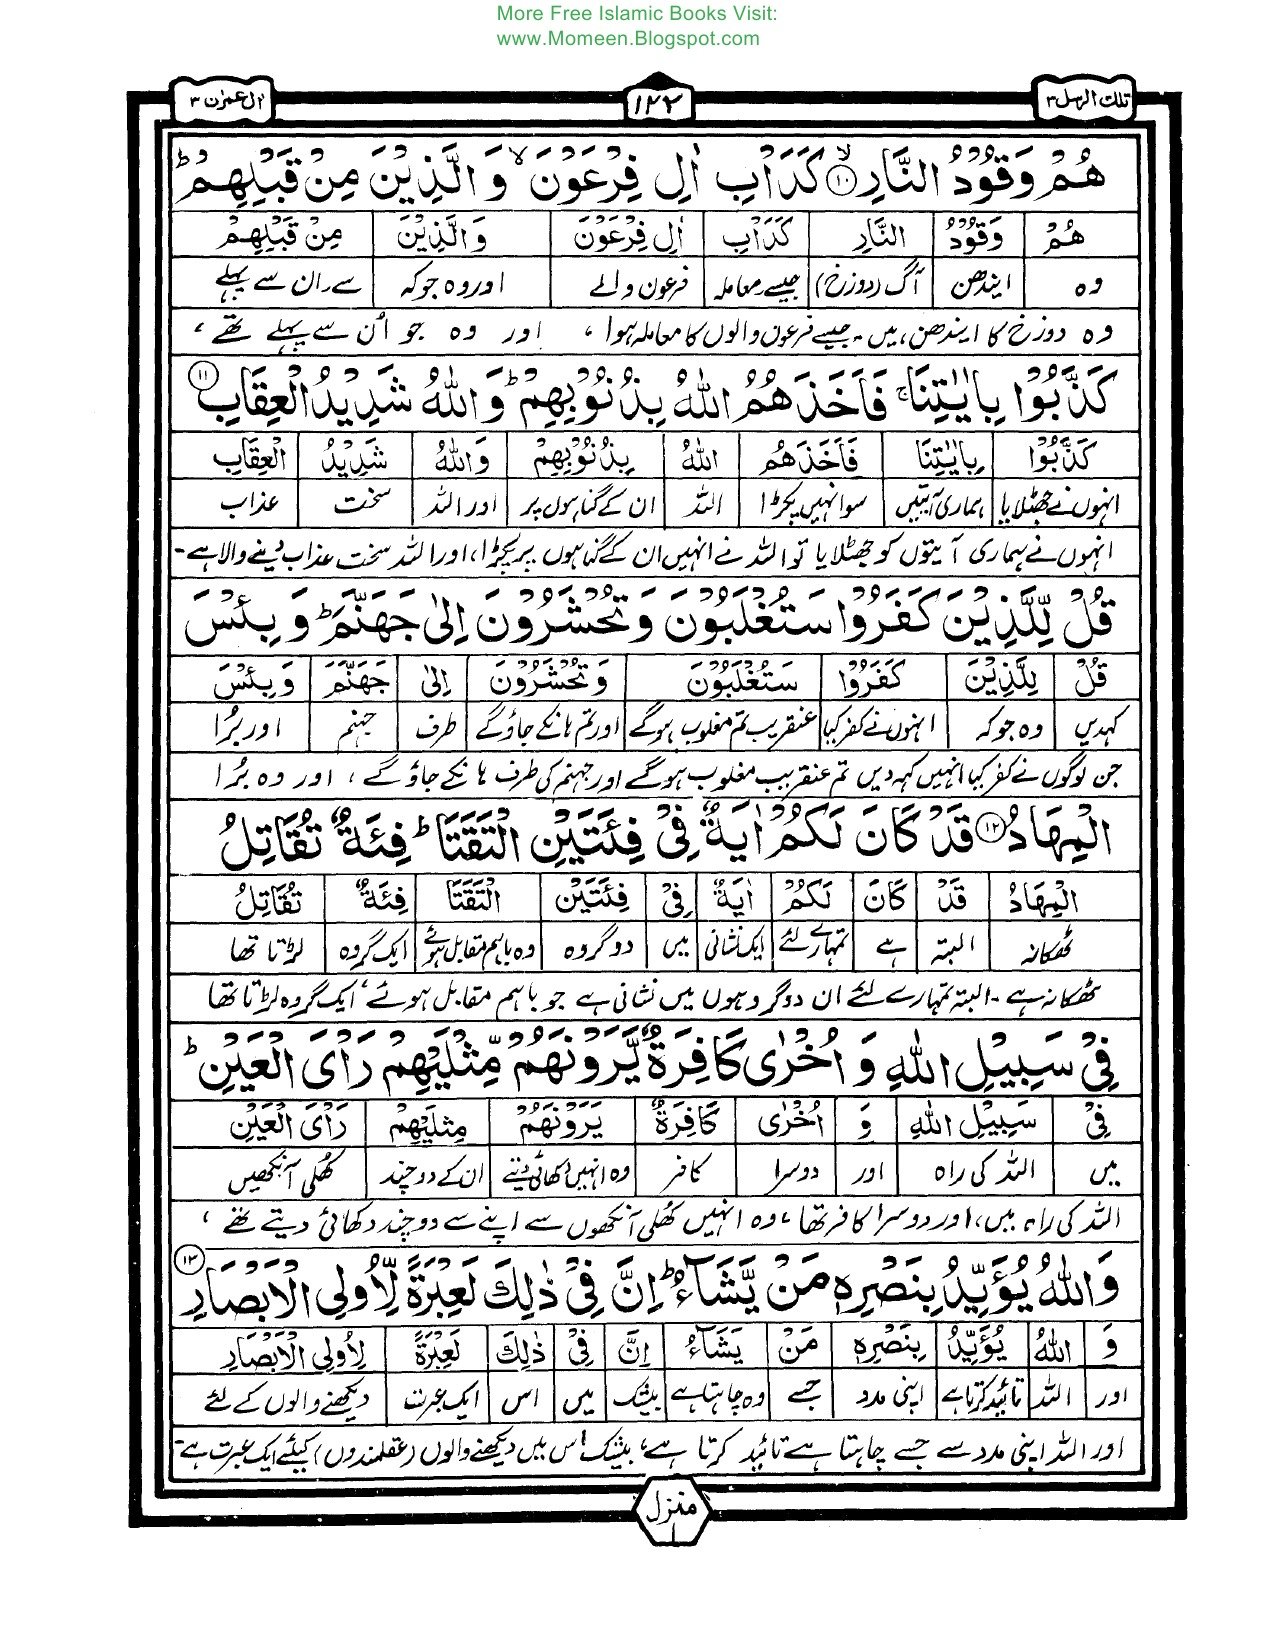 More Free Islamic Books Visit:
www.Momeen.Blogspot.com
تلك الرسل ۳ ۱۲۲ اٰل عمرٰن ۳
هُمْ وَقُوْدُ النَّارِ ۙ۱۰ كَدَاْبِ اٰلِ فِرْعَوْنَ ۙ وَالَّذِيْنَ مِنْ قَبْلِهِمْ ؕ
هُمْ وَقُوْدُ النَّارِ كَدَاْبِ اٰلِ فِرْعَوْنَ وَالَّذِيْنَ مِنْ قَبْلِهِمْ
وہ ایندھن آگ (دوزخ) جیسے۔معاملہ فرعون والے اور وہ جو کہ سے۔ان سے پہلے
وہ دوزخ کا ایندھن ہیں۔ جیسے فرعون والوں کا معاملہ ہوا، اور وہ جو اُن سے پہلے تھے،
كَذَّبُوْا بِاٰيٰتِنَا ۚ فَاَخَذَهُمُ اللّٰهُ بِذُنُوْبِهِمْ ؕ وَاللّٰهُ شَدِيْدُ الْعِقَابِ ۱۱
كَذَّبُوْا بِاٰيٰتِنَا فَاَخَذَهُمُ اللّٰهُ بِذُنُوْبِهِمْ وَاللّٰهُ شَدِيْدُ الْعِقَابِ
انہوں نے جھٹلایا ہماری آیتیں سو انہیں پکڑا اللہ ان کے گناہوں پر اور اللہ سخت عذاب
انہوں نے ہماری آیتوں کو جھٹلایا تو اللہ نے انہیں ان کے گناہوں پر پکڑا، اور اللہ سخت عذاب دینے والا ہے۔
قُلْ لِّلَّذِيْنَ كَفَرُوْا سَتُغْلَبُوْنَ وَتُحْشَرُوْنَ اِلٰى جَهَنَّمَ ؕ وَبِئْسَ
قُلْ لِلَّذِيْنَ كَفَرُوْا سَتُغْلَبُوْنَ وَتُحْشَرُوْنَ اِلٰى جَهَنَّمَ وَبِئْسَ
کہدیں وہ جو کہ انہوں نے کفر کیا عنقریب تم مغلوب ہوگے اور تم ہانکے جاؤگے طرف جہنم اور بُرا
جن لوگوں نے کفر کیا انہیں کہہ دیں تم عنقریب مغلوب ہوگے اور جہنم کی طرف ہانکے جاؤگے، اور وہ بُرا
الْمِهَادُ ۱۲ قَدْ كَانَ لَكُمْ اٰيَةٌ فِيْ فِئَتَيْنِ الْتَقَتَا ؕ فِئَةٌ تُقَاتِلُ
الْمِهَادُ قَدْ كَانَ لَكُمْ اٰيَةٌ فِيْ فِئَتَيْنِ الْتَقَتَا فِئَةٌ تُقَاتِلُ
ٹھکانہ البتہ ہے تمہارے لئے ایک نشانی میں دو گروہ وہ باہم مقابل ہوئے ایک گروہ لڑتا تھا
ٹھکانہ ہے۔ البتہ تمہارے لئے ان دو گروہوں میں نشانی ہے جو باہم مقابل ہوئے، ایک گروہ لڑتا تھا
فِيْ سَبِيْلِ اللّٰهِ وَ اُخْرٰى كَافِرَةٌ يَّرَوْنَهُمْ مِّثْلَيْهِمْ رَاْىَ الْعَيْنِ ؕ
فِيْ سَبِيْلِ اللّٰهِ وَ اُخْرٰى كَافِرَةٌ يَرَوْنَهُمْ مِثْلَيْهِمْ رَاْىَ الْعَيْنِ
میں اللہ کی راہ اور دوسرا کافر وہ انہیں دکھائی دیتے ان کے دو چند کھُلی آنکھیں
اللہ کی راہ میں، اور دوسرا کافر تھا، وہ انہیں کھُلی آنکھوں سے اپنے سے دو چند دکھائی دیتے تھے،
وَاللّٰهُ يُؤَيِّدُ بِنَصْرِهٖ مَنْ يَّشَآءُ ؕ اِنَّ فِيْ ذٰلِكَ لَعِبْرَةً لِّاُولِى الْاَبْصَارِ ۱۳
وَ اللّٰهُ يُؤَيِّدُ بِنَصْرِهٖ مَنْ يَشَآءُ اِنَّ فِيْ ذٰلِكَ لَعِبْرَةً لِاُولِى الْاَبْصَارِ
اور اللہ تائید کرتا ہے اپنی مدد جسے وہ چاہتا ہے بیشک میں اس ایک عبرت دیکھنے والوں کے لئے
اور اللہ اپنی مدد سے جسے چاہتا ہے تائید کرتا ہے، بیشک اس میں دیکھنے والوں (عقلمندوں) کیلئے ایک عبرت ہے۔
منزل ۱